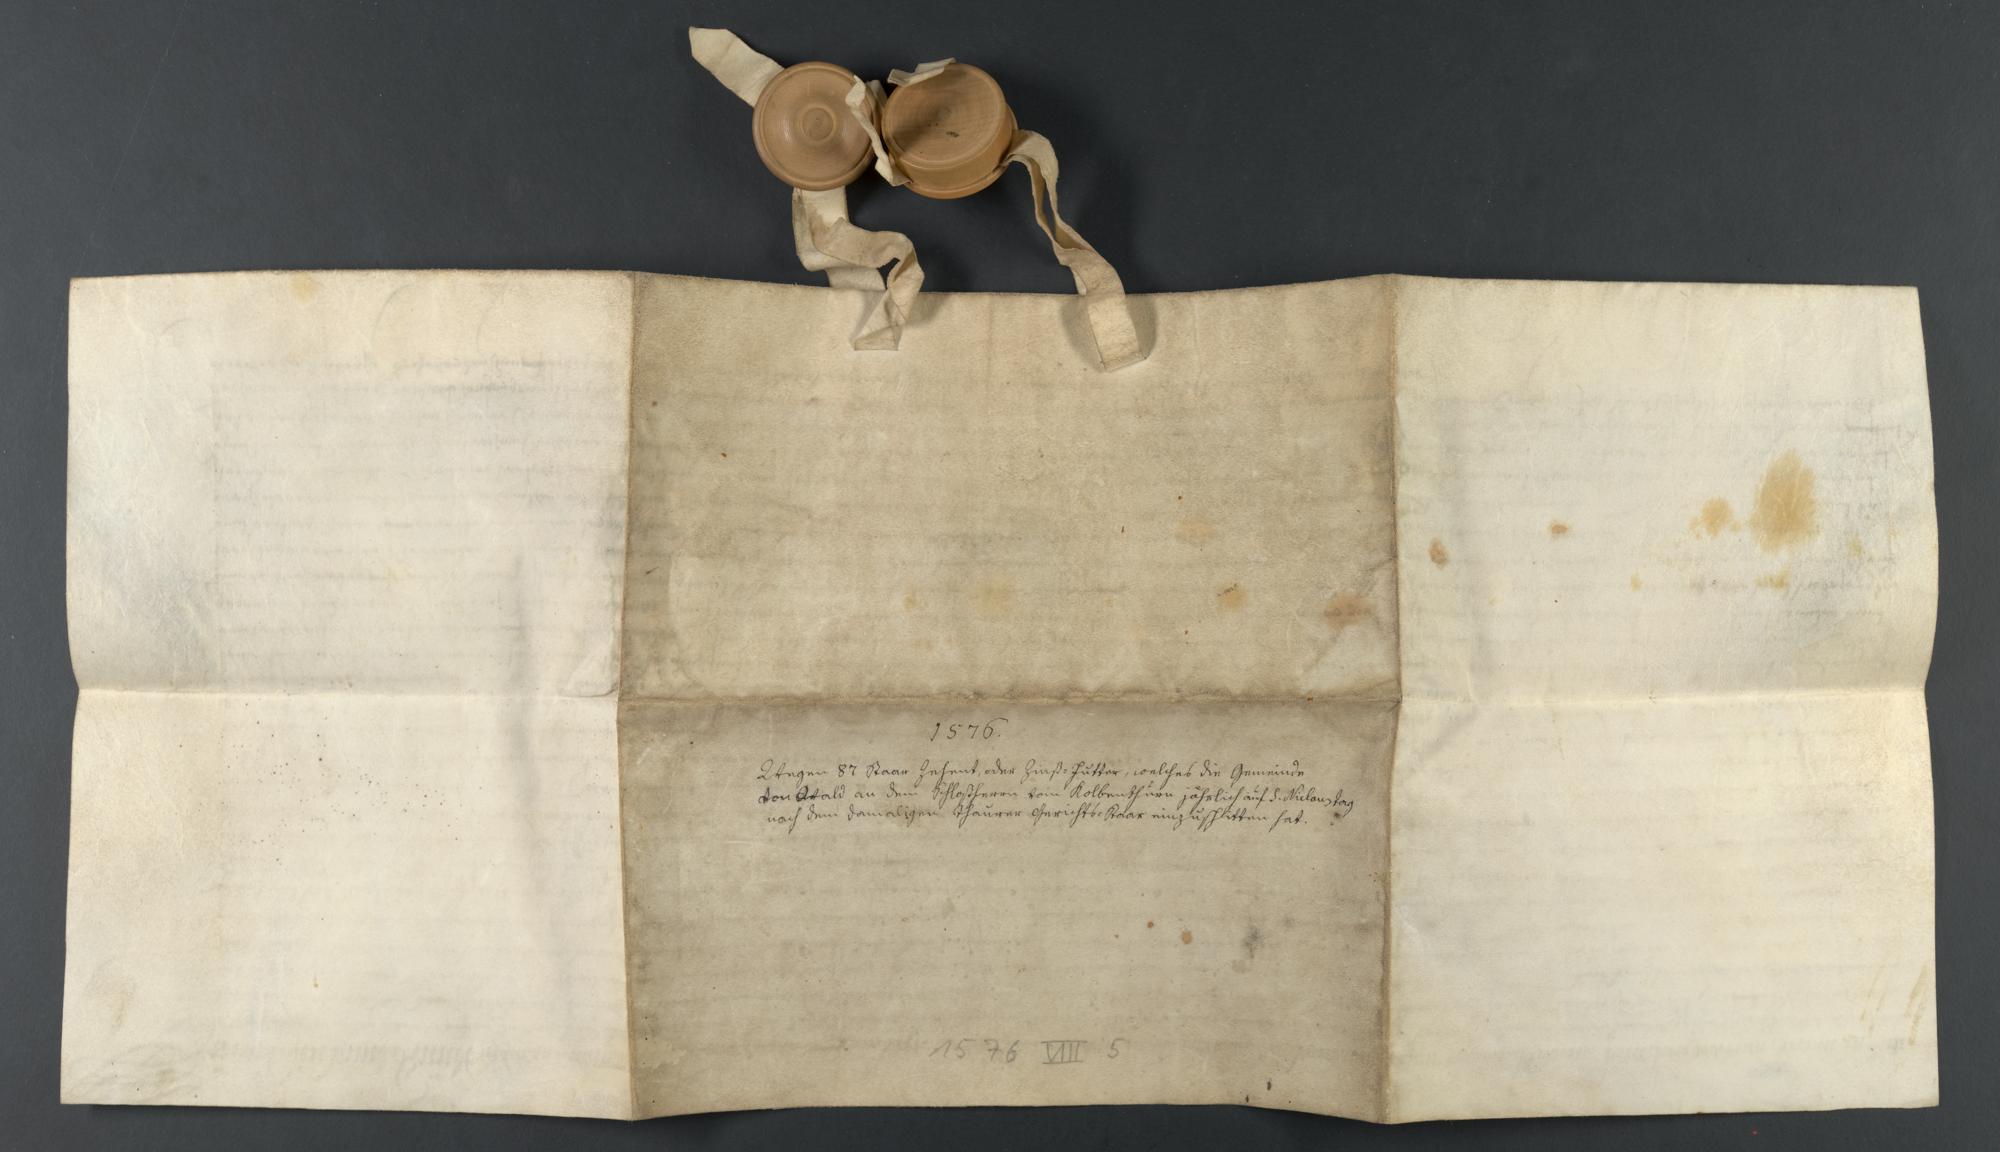 1576.
Wegen 87 Staar Zehent, oder Zinß-Futter, welches die Gemeinde
von Wald an dem Schloßherrn vom Kolbenthurn jährlich auf S. Niclaustag
nach dem damaligen Thaurer Gerichts-Staar einzuschitten hat.
1576 VIII 5